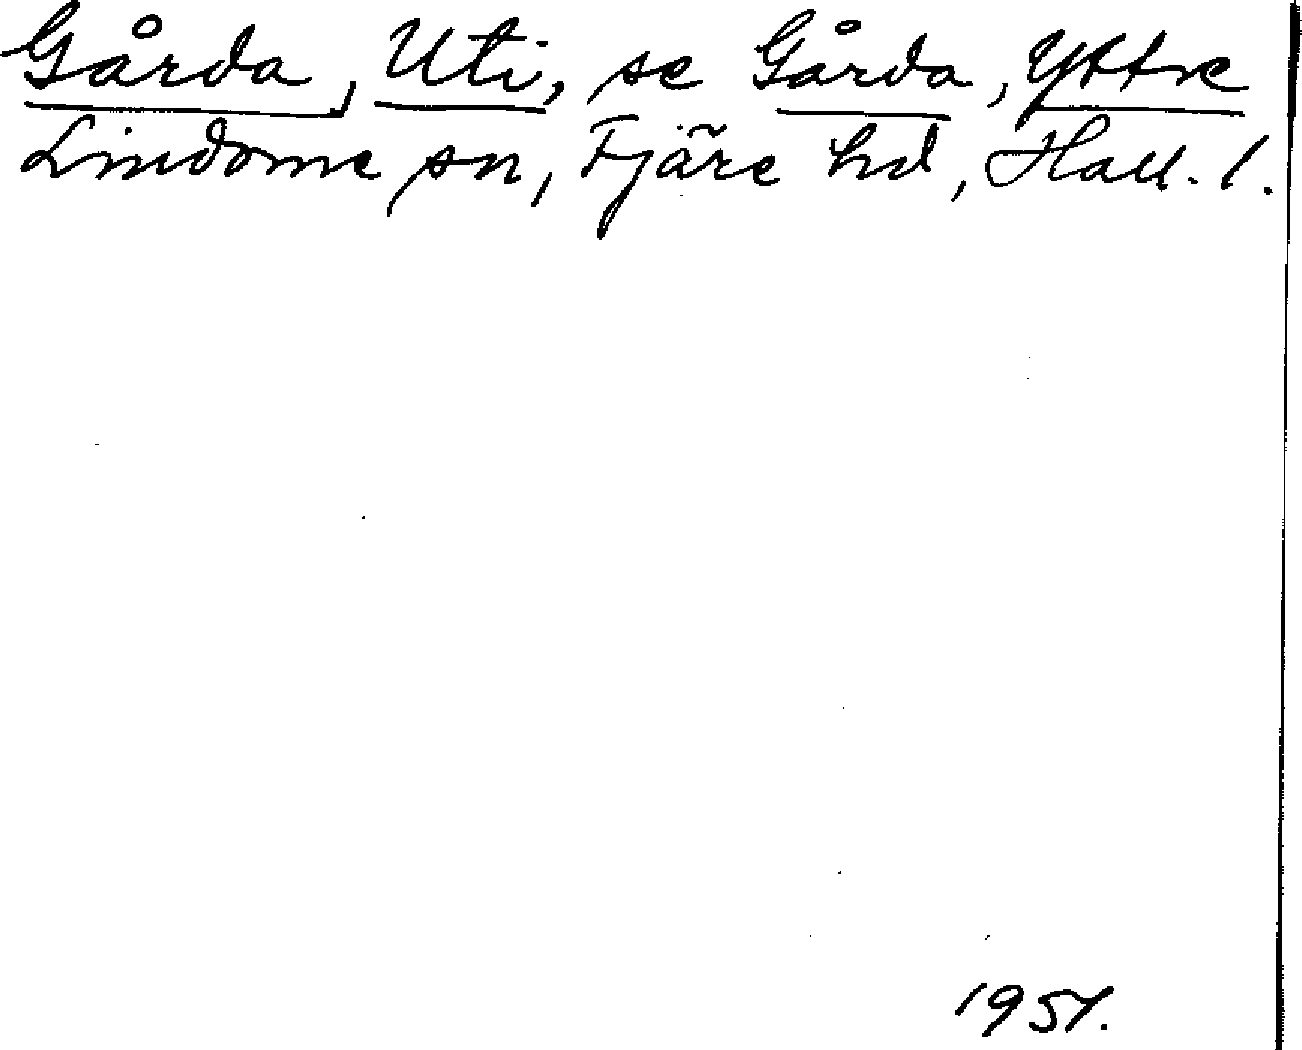 Gårda, Uti, se Gårda, Yttre
Lindome sn, Fjäre hd, Hall. l.
1951.